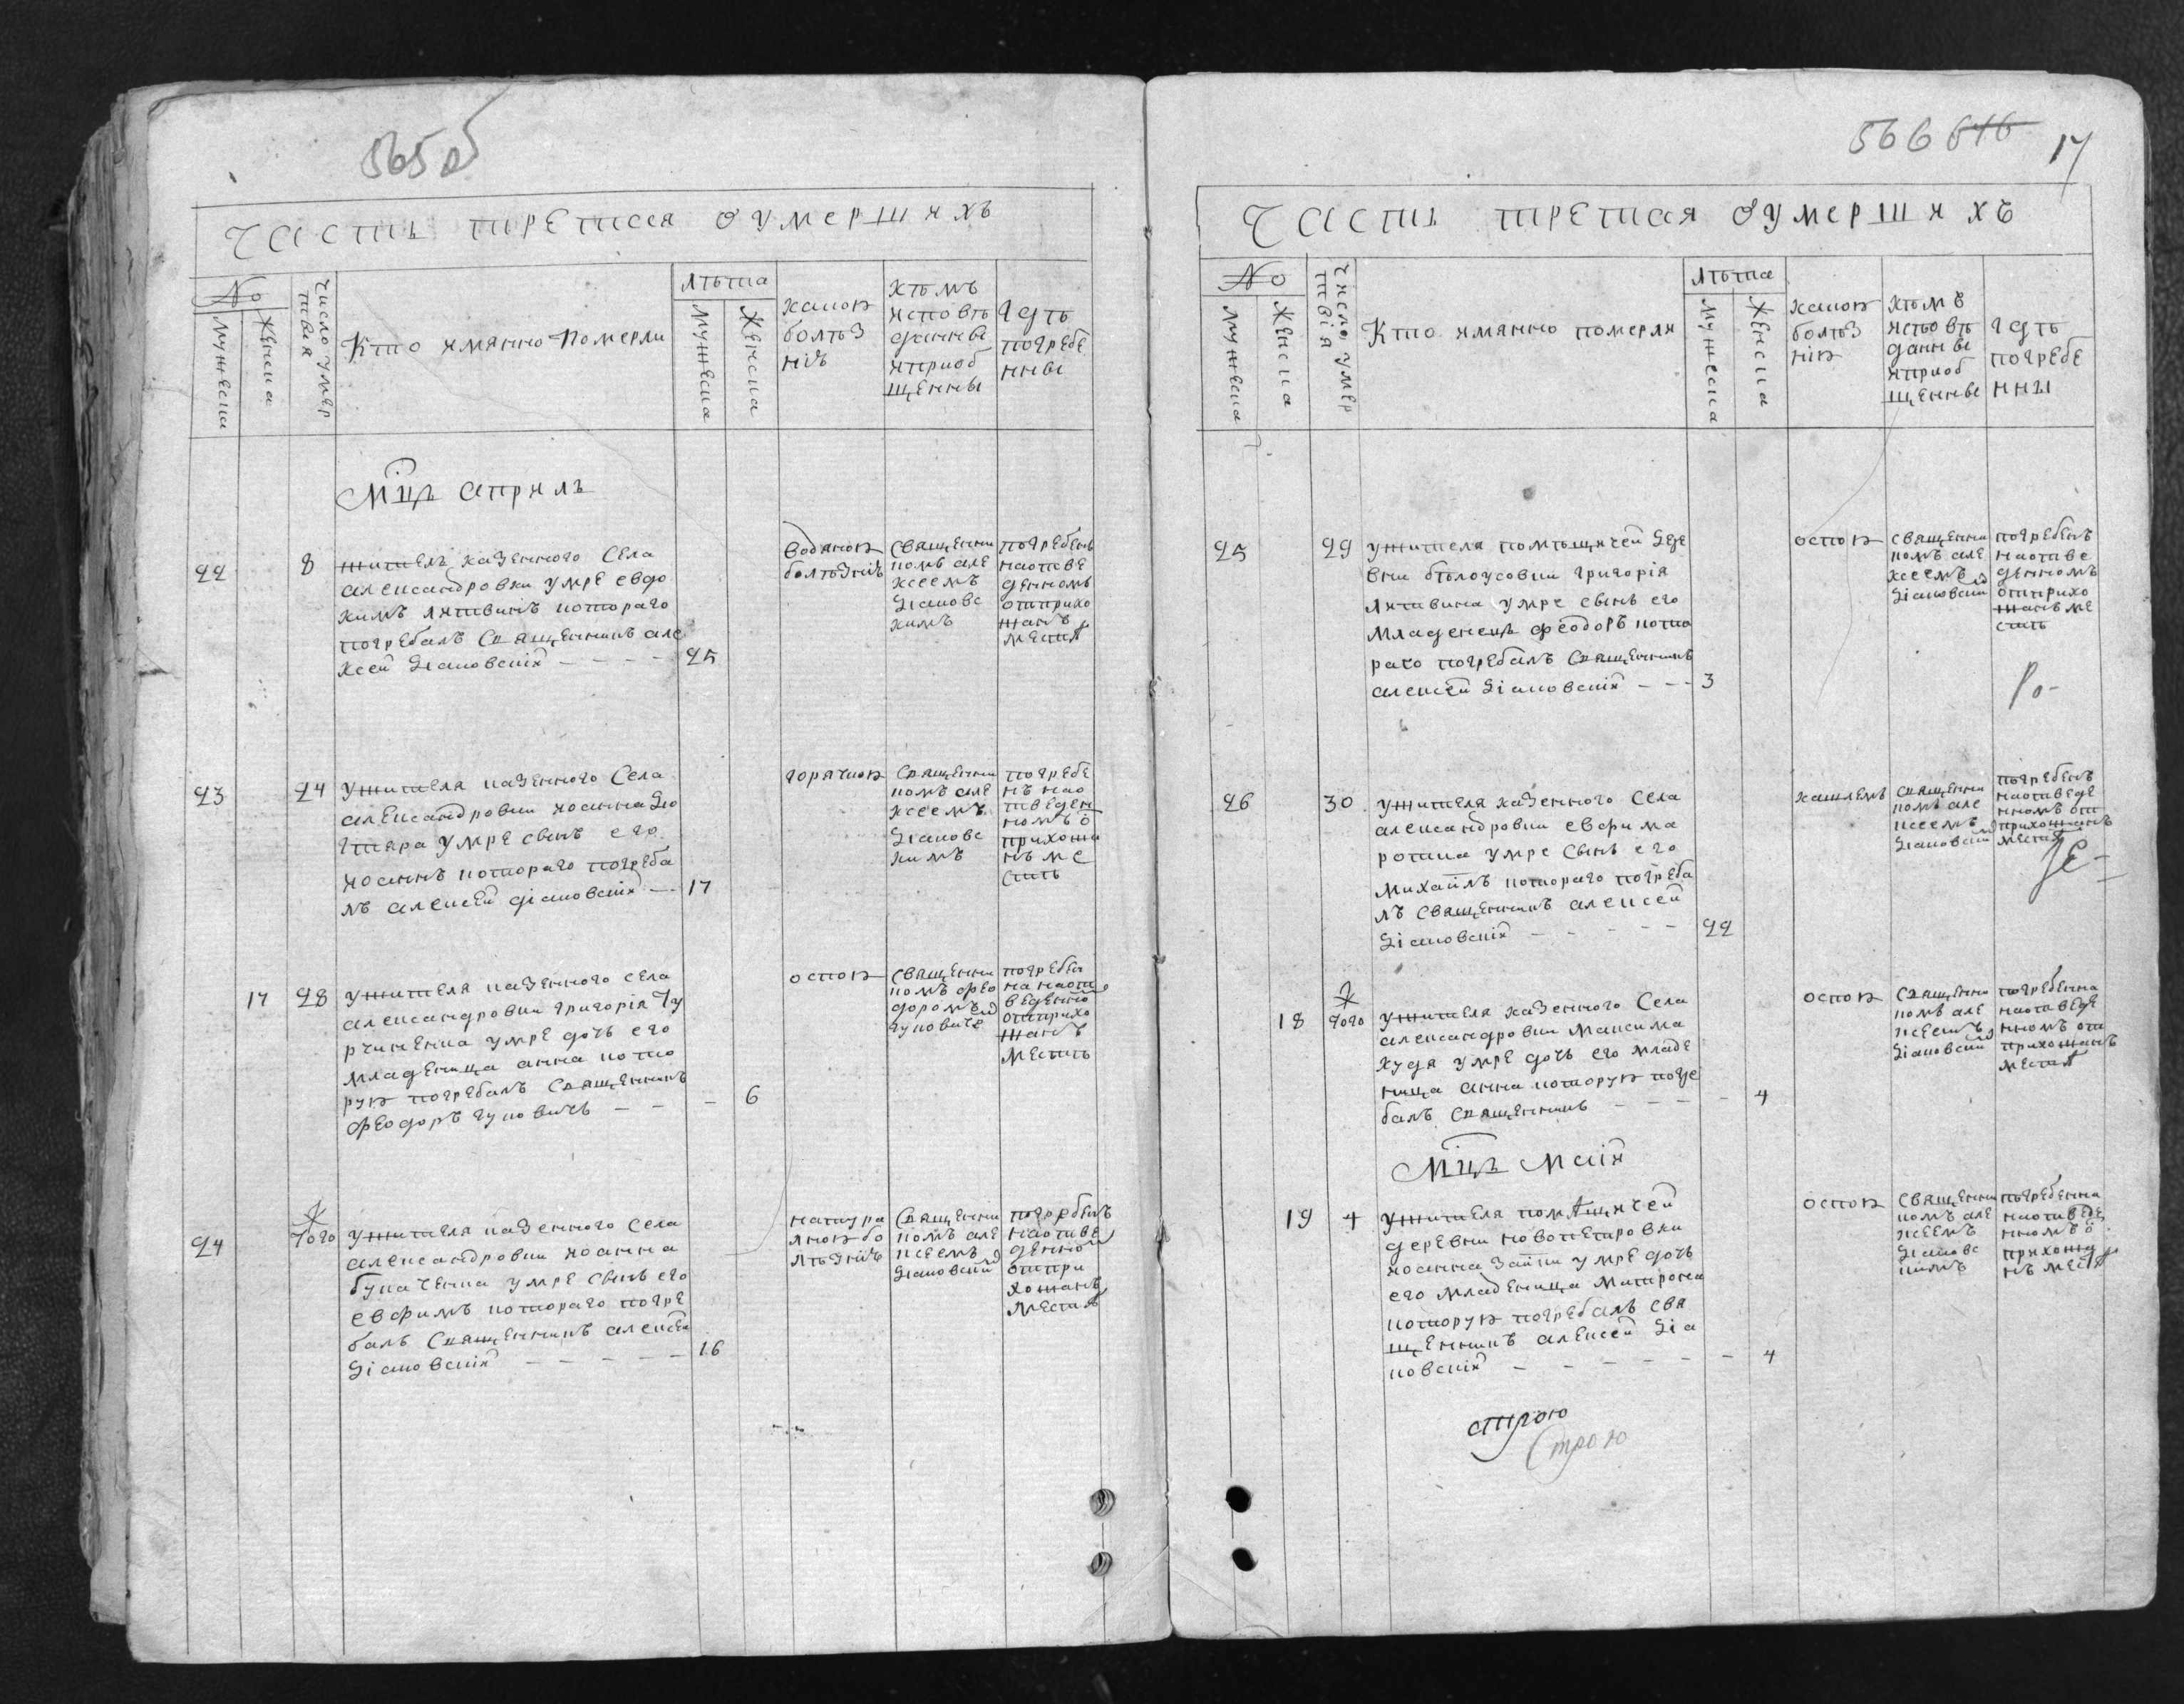 565 об
Часть третая оумершихъ
№
мужеска
женска
число умертвия
Кто имянно Померли
лѣта
мужеска
женска
какою
болѣз
нію
кѣмъ
исповѣ
данны
и приоб
щенны
Гдѣ
погребе
нны
Мцъ априлъ
22
8
житель казенного села
александровки умре евдо
кимъ литвинъ котораго
погребалъ священникъ але
ксей діаковскій
25
водяною
болѣзнію
священни
комъ але
ксеемъ
діаковс
кимъ
погребенъ
на отве
денномъ
от прихо
жанъ
местѣ
23
24
у жителя казенного села
александровки иоанна
умре сынъ его
иоаннъ котораго погреба
лъ алексей діаковскій
17
горячкою
священни
комъ але
ксеемъ
діаковс
кимъ
погребе
нъ на о
тведен
номъ о
прихожа
нъ ме
стѣ
17
28
у жителя казенного села
александровки григорія гу
рченка умре дочь его
младеница анна кото
рую погребалъ священникъ
феодоръ гуковичъ
6
оспою
священни
комъ фео
доромъ
гуковиче
погребен
на на от
веденно
от прихо
жанъ
местѣ
24
того
у жителя казенного села
александровки иоанна
букаченка умре сынъ его
евфимъ котораго погре
балъ священникъ алексей
діаковскій
16
натура
лною бо
лѣзнію
священни
комъ але
ксеемъ
діаковски
погребенъ
на отве
денно
от при
хожанъ
местѣ
566 646 17
Часть третая оумершихъ
№
мужеска
женска
число умертвія
Кто имянно померли
лѣта
мужеска
женска
какою
болѣз
нію
кѣмъ
исповѣ
данны
и приоб
щенны
гдѣ
погребе
нны
25
29
у жителя помѣщичей дере
вни бѣлоусовки григорія
литвина умре сынъ его
младенецъ феодоръ кото
раго погребалъ священникъ
алексей діаковскій
3
оспою
священни
комъ але
ксеемъ
діаковски
погребенъ
на отве
денномъ
от прихо
жанъ ме
стѣ
26
30
у жителя казенного села
александровки евфима
ротка умре сынъ его
михаилъ котораго погреба
лъ священникъ алексей
діаковскій
22
кашлемъ
священни
комъ але
ксеемъ
діаковски
погребенъ
на отведе
нномъ от
прихожанъ
местѣ
18
того
у жителя казенного села
александровки максима
худя умре дочь его младе
ница анна которую погре
балъ священникъ
4
оспою
священни
комъ але
ксеемъ
діаковски
погребенна
на отведе
нномъ от
прихожанъ
местѣ
Мцъ маій
19
4
у жителя помѣщичей
деревни новопетровки
иоанна заики умре дочь
его младеница матрона
которую погребалъ свя
щенникъ алексей діа
ковскій
4
оспою
священни
комъ але
ксеемъ
діаковс
кимъ
погребенна
на отведе
нномъ о
прихожа
нъ местѣ
строю
Строю